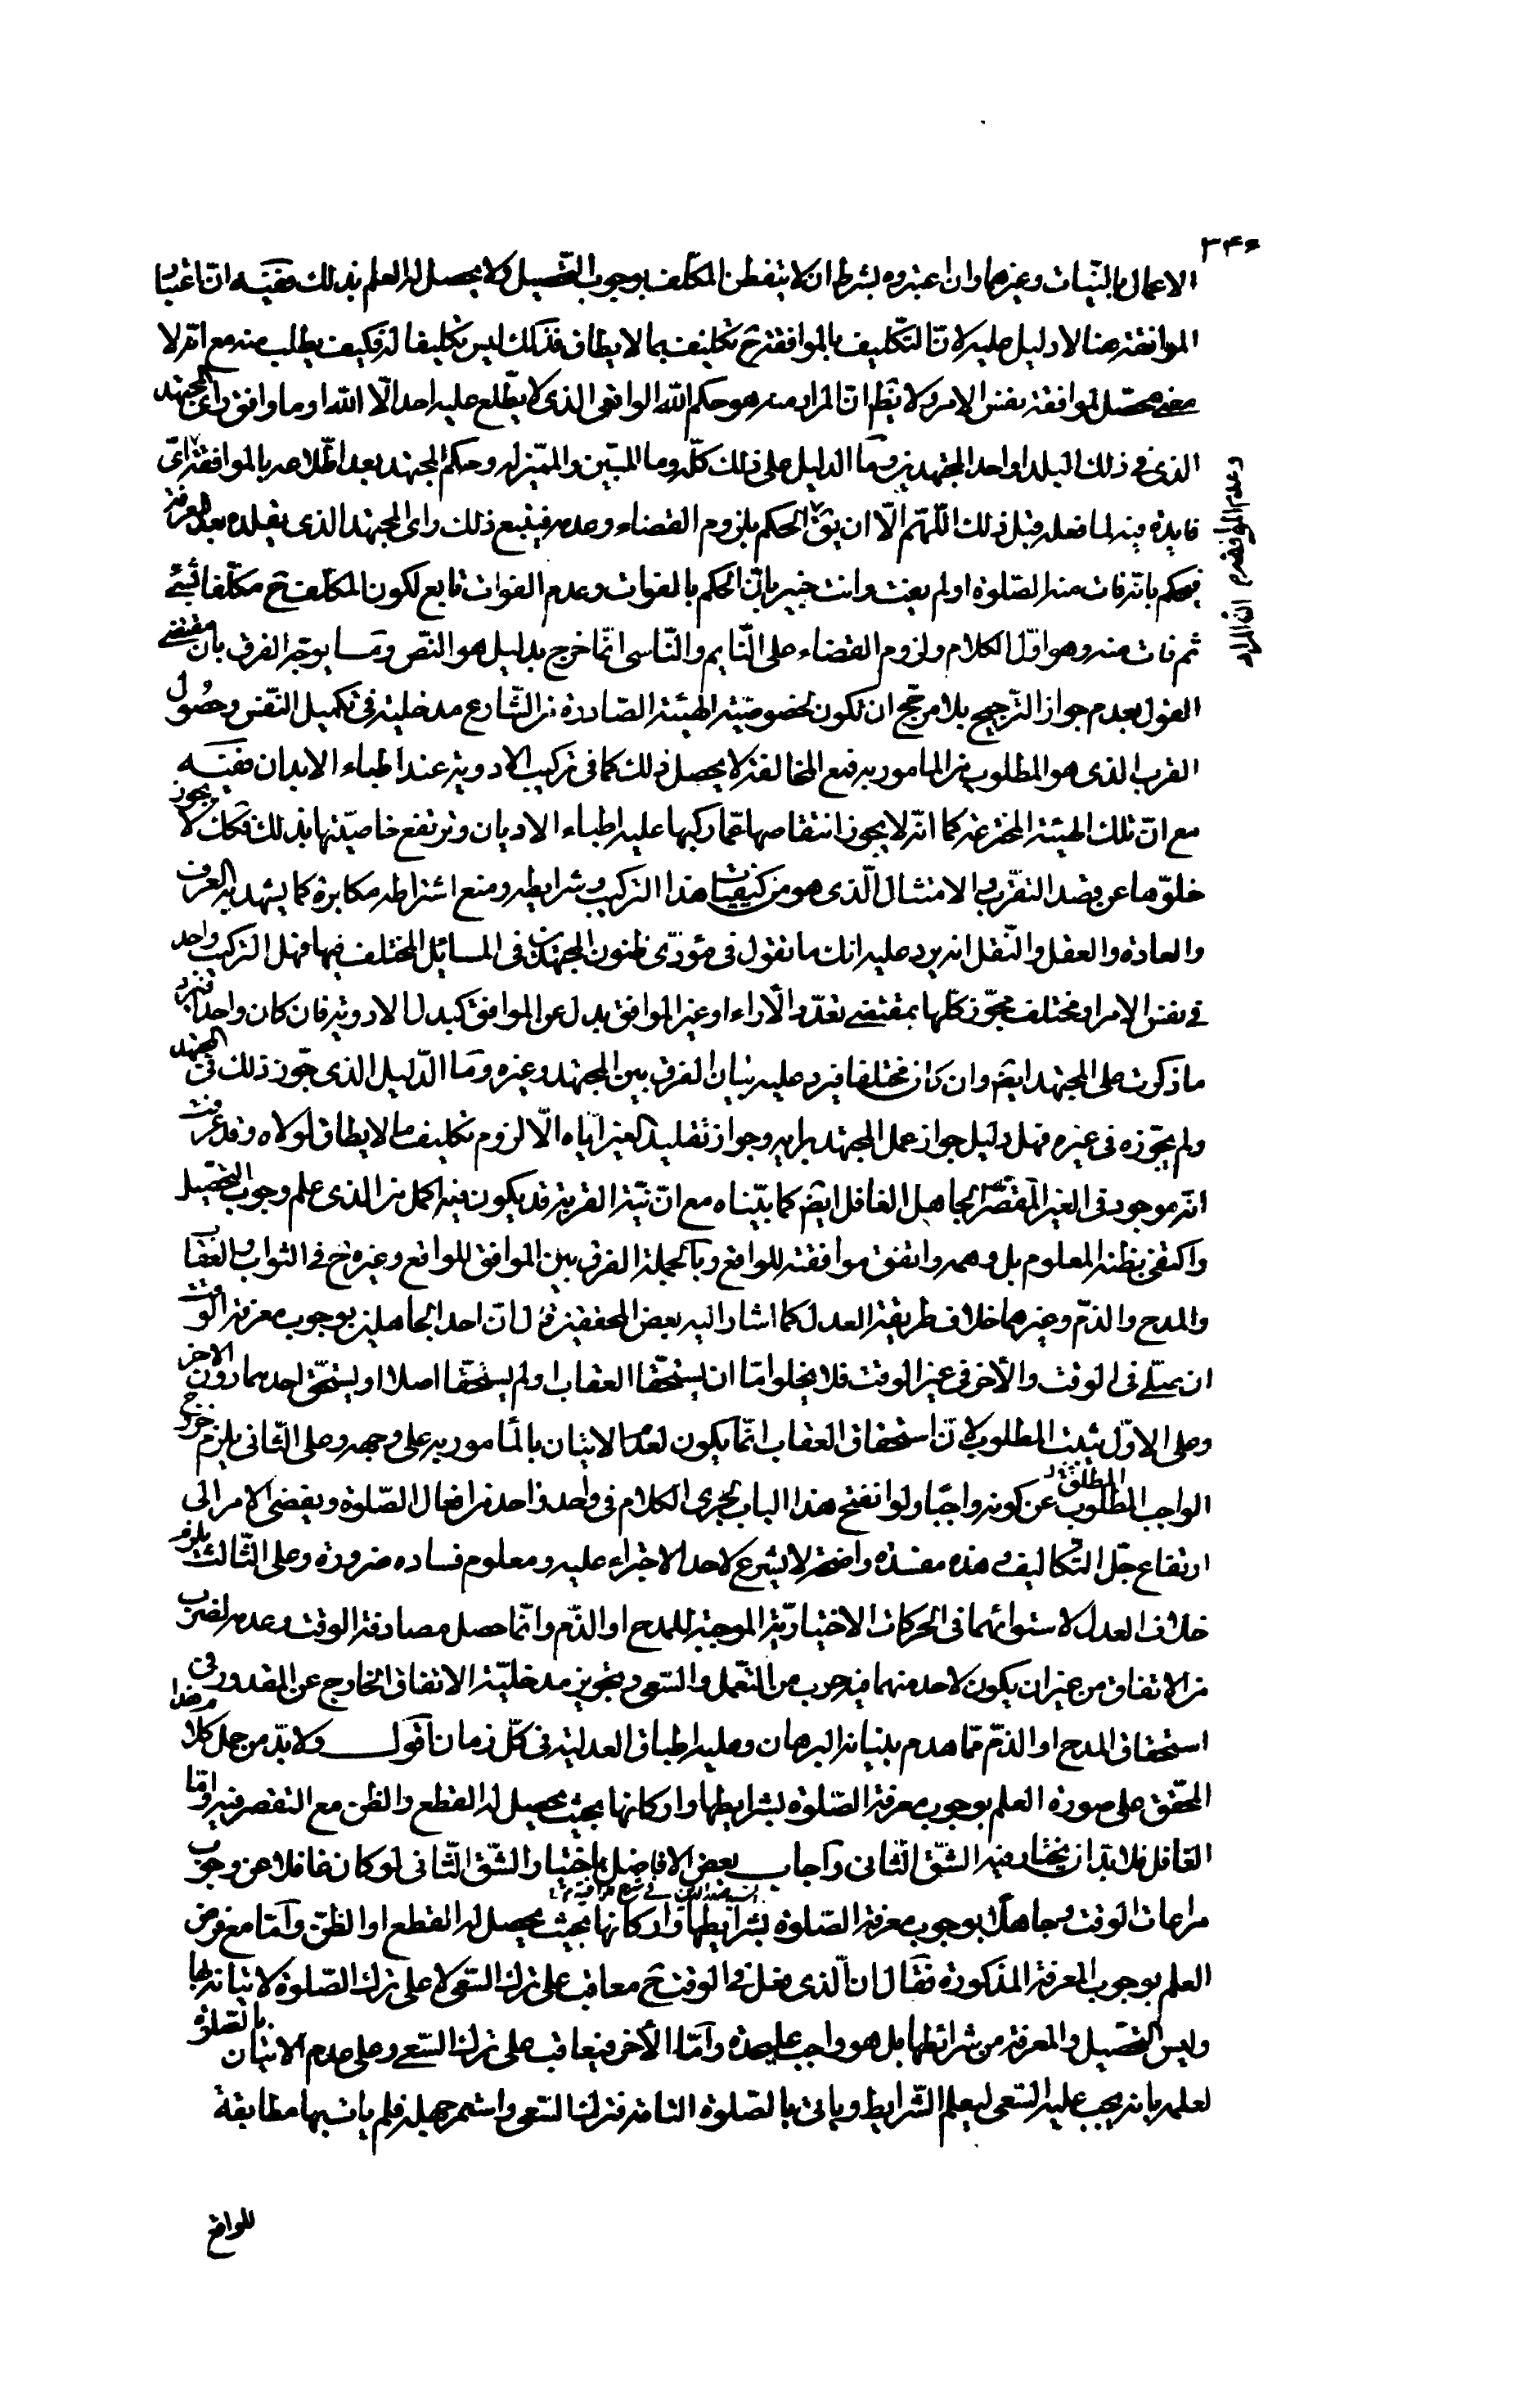 ٣٤٠
الاعمال بالنيّات وغيرهما وان اعتبروه بشرط ان لا يتفطن المكلّف بوجوب التحصيل ولا يحصل له العلم بذلك ففيه انّ اعتبار
الموافقة هنا لا دليل عليه لانّ التكليف بالموافقة ح تكليف بما لا يطاق فذلك ليس تكليفا له فكيف يطلب منه مع انّه لا
معنى محصّل لموافقة نفس الامر ولا يظهر انّ المراد منه هو حكم الله الواقعى الذى لا يطّلع عليه احد الّا الله او ما وافق راى المجتهد
الذى فى ذلك البلد او احد المجتهدين وما الدليل على ذلك كلّه وما المبيّن والمميّز له وحكم المجتهد بعد اطّلاعه بالموافقة اىّ
وعدم الموافقة
فايدة فيه لما فعله قبل ذلك اللّهمّ الّا ان يقال الحكم بلزوم القضاء وعدمه فيتبع ذلك راى المجتهد الذى يقلده بعد المعرفة
فيحكم بانّه فات منه الصّلوة او لم يفت وانت خبير بانّ الحكم بالفوات وعدم الفوات تابع لكون المكلّف ح مكلّفا بشئ
ثم فات منه وهو اوّل الكلام ولزوم القضاء على النّايم والنّاسى انّما خرج بدليل هو النّص وربّما يوجّه الفرق بان مقتضى
القول بعدم جواز التّرجيح بلا مرجّح ان تكون لخصوصيّة الهيئة الصّادرة من الشّارع مدخلية فى تكميل النّفس وحصول
القرب الذى هو المطلوب من المامور به فمع المخالفة لا يحصل ذلك كما فى تركيب الادوية عند اطباء الابدان ففيه
مع انّ تلك الهيئة المخترعة كما انّه لا يجوز انتقاصها عمّا ركبها عليه اطباء الاديان وترتفع خاصيّتها بذلك فكك لا يجوز
خلوّها عن قصد التقرّب والامتثال الّذى هو من كيفيات هذا التركيب وشرايطه ومنع اشتراطه مكابرة كما يشهد به العرف
والعادة والعقل والنّقل انه يرد عليه انك ما تقول فى مؤدّى ظنون المجتهدين فى المسائل المختلف فيها فهل التركيب واحد
فى نفس الامر او مختلف فجوّز كلّها بمقتضى تعدّد الآراء او غير الموافق بدل عن الموافق كبدل الادوية فان كان واحدا فيرد
ما ذكرت على المجتهد ايضا وان كان مختلفا فيرد عليه بيان الفرق بين المجتهد وغيره وما الدّليل الذى جوّز ذلك فى المجتهد
ولم يجوّزه فى غيره فهل دليل جواز عمل المجتهد برايه وجواز تقليد الغير ايّاه الّا لزوم تكليف ما لا يطاق لولاه وقد عرفت
انّه موجود فى الغير المقصّر الجاهل الغافل ايضا كما بيّناه مع انّ نيّة القربة قد يكون فيه اكمل من الذى علم وجوب التحصيل
واكتفى بظنه المعلوم بل وهمه واتفق موافقته للواقع وبالجملة الفرق بين الموافق للواقع وغيره ح فى الثواب والعقاب
والمدح والذّم وغيرهما خلاف طريقة العدل كما اشار اليه بعض المحققين قال انّ احد الجاهلين بوجوب معرفة الوقت
ان صلّى فى الوقت والآخر فى غير الوقت فلا يخلوا امّا ان يستحقّا العقاب او لم يستحقّا اصلا او يستحقّ احدهما دون الاخر
وعلى الاوّل يثبت المطلوب لانّ استحقاق العقاب انّما يكون لعدم الاتيان بالمامور به على وجهه وعلى الثّانى يلزم خروج
الواجب المطلق عن كونه واجبا ولو انفتح هذا الباب لجرى الكلام فى واحد واحد من افعال الصّلوة ويفضى الامر الى
ارتفاع جلّ التكاليف وهذه مفسدة واضحة لا يشرع لاحد الاجتراء عليه ومعلوم فساده ضرورة وعلى الثّالث يلزم
خلاف العدل لاستوائهما فى الحركات الاختياريّة الموجبة للمدح او الذّم وانّما حصل مصادفة الوقت وعدمه لضرب
من الاتفاق من غير ان يكون لاحد منهما فيه ضرب من التعمّل والسّعى وتجويز مدخليّة الاتفاق الخارج عن المقدور فى
استحقاق المدح او الذّمّ ممّا هدم بنيانه البرهان وعليه اطباق العدلية فى كلّ زمان اقول ولا بدّ من حمل كلام هذا
المحقّق على صورة العلم بوجوب معرفة الصّلوة بشرايطها واركانها بحيث يحصيل له القطع والظن مع التقصير فيه وامّا
الغافل فلا بدّ ان يختار فيه الشّق الثّانى واجاب بعض الافاضل باختيار الشّق الثّانى لو كان غافلا عن وجوب
مراعات الوقت وجاهلا بوجوب معرفة الصّلوة بشرايطها واركانها بحيث يحصيل له القطع او الظنّ وامّا مع فرض
العلم بوجوب المعرفة المذكورة فقال انّ الّذى فعل فى الوقت ح معاقب على ترك السّعى لا على ترك الصّلوة لاتيانه بها
وليس التّحصيل والمعرفة من شرائطها بل هو واجب عليحده وامّا الآخر فيعاقب على ترك السّعى وعلى عدم الاتيان بالصّلوة
لعلمه بانه يجب عليه السّعى ليعلم الشّرايط وياتى بالصّلوة التامّة فترك السّعى واستمر جهله فلم يات بها مطابقة
للواقع